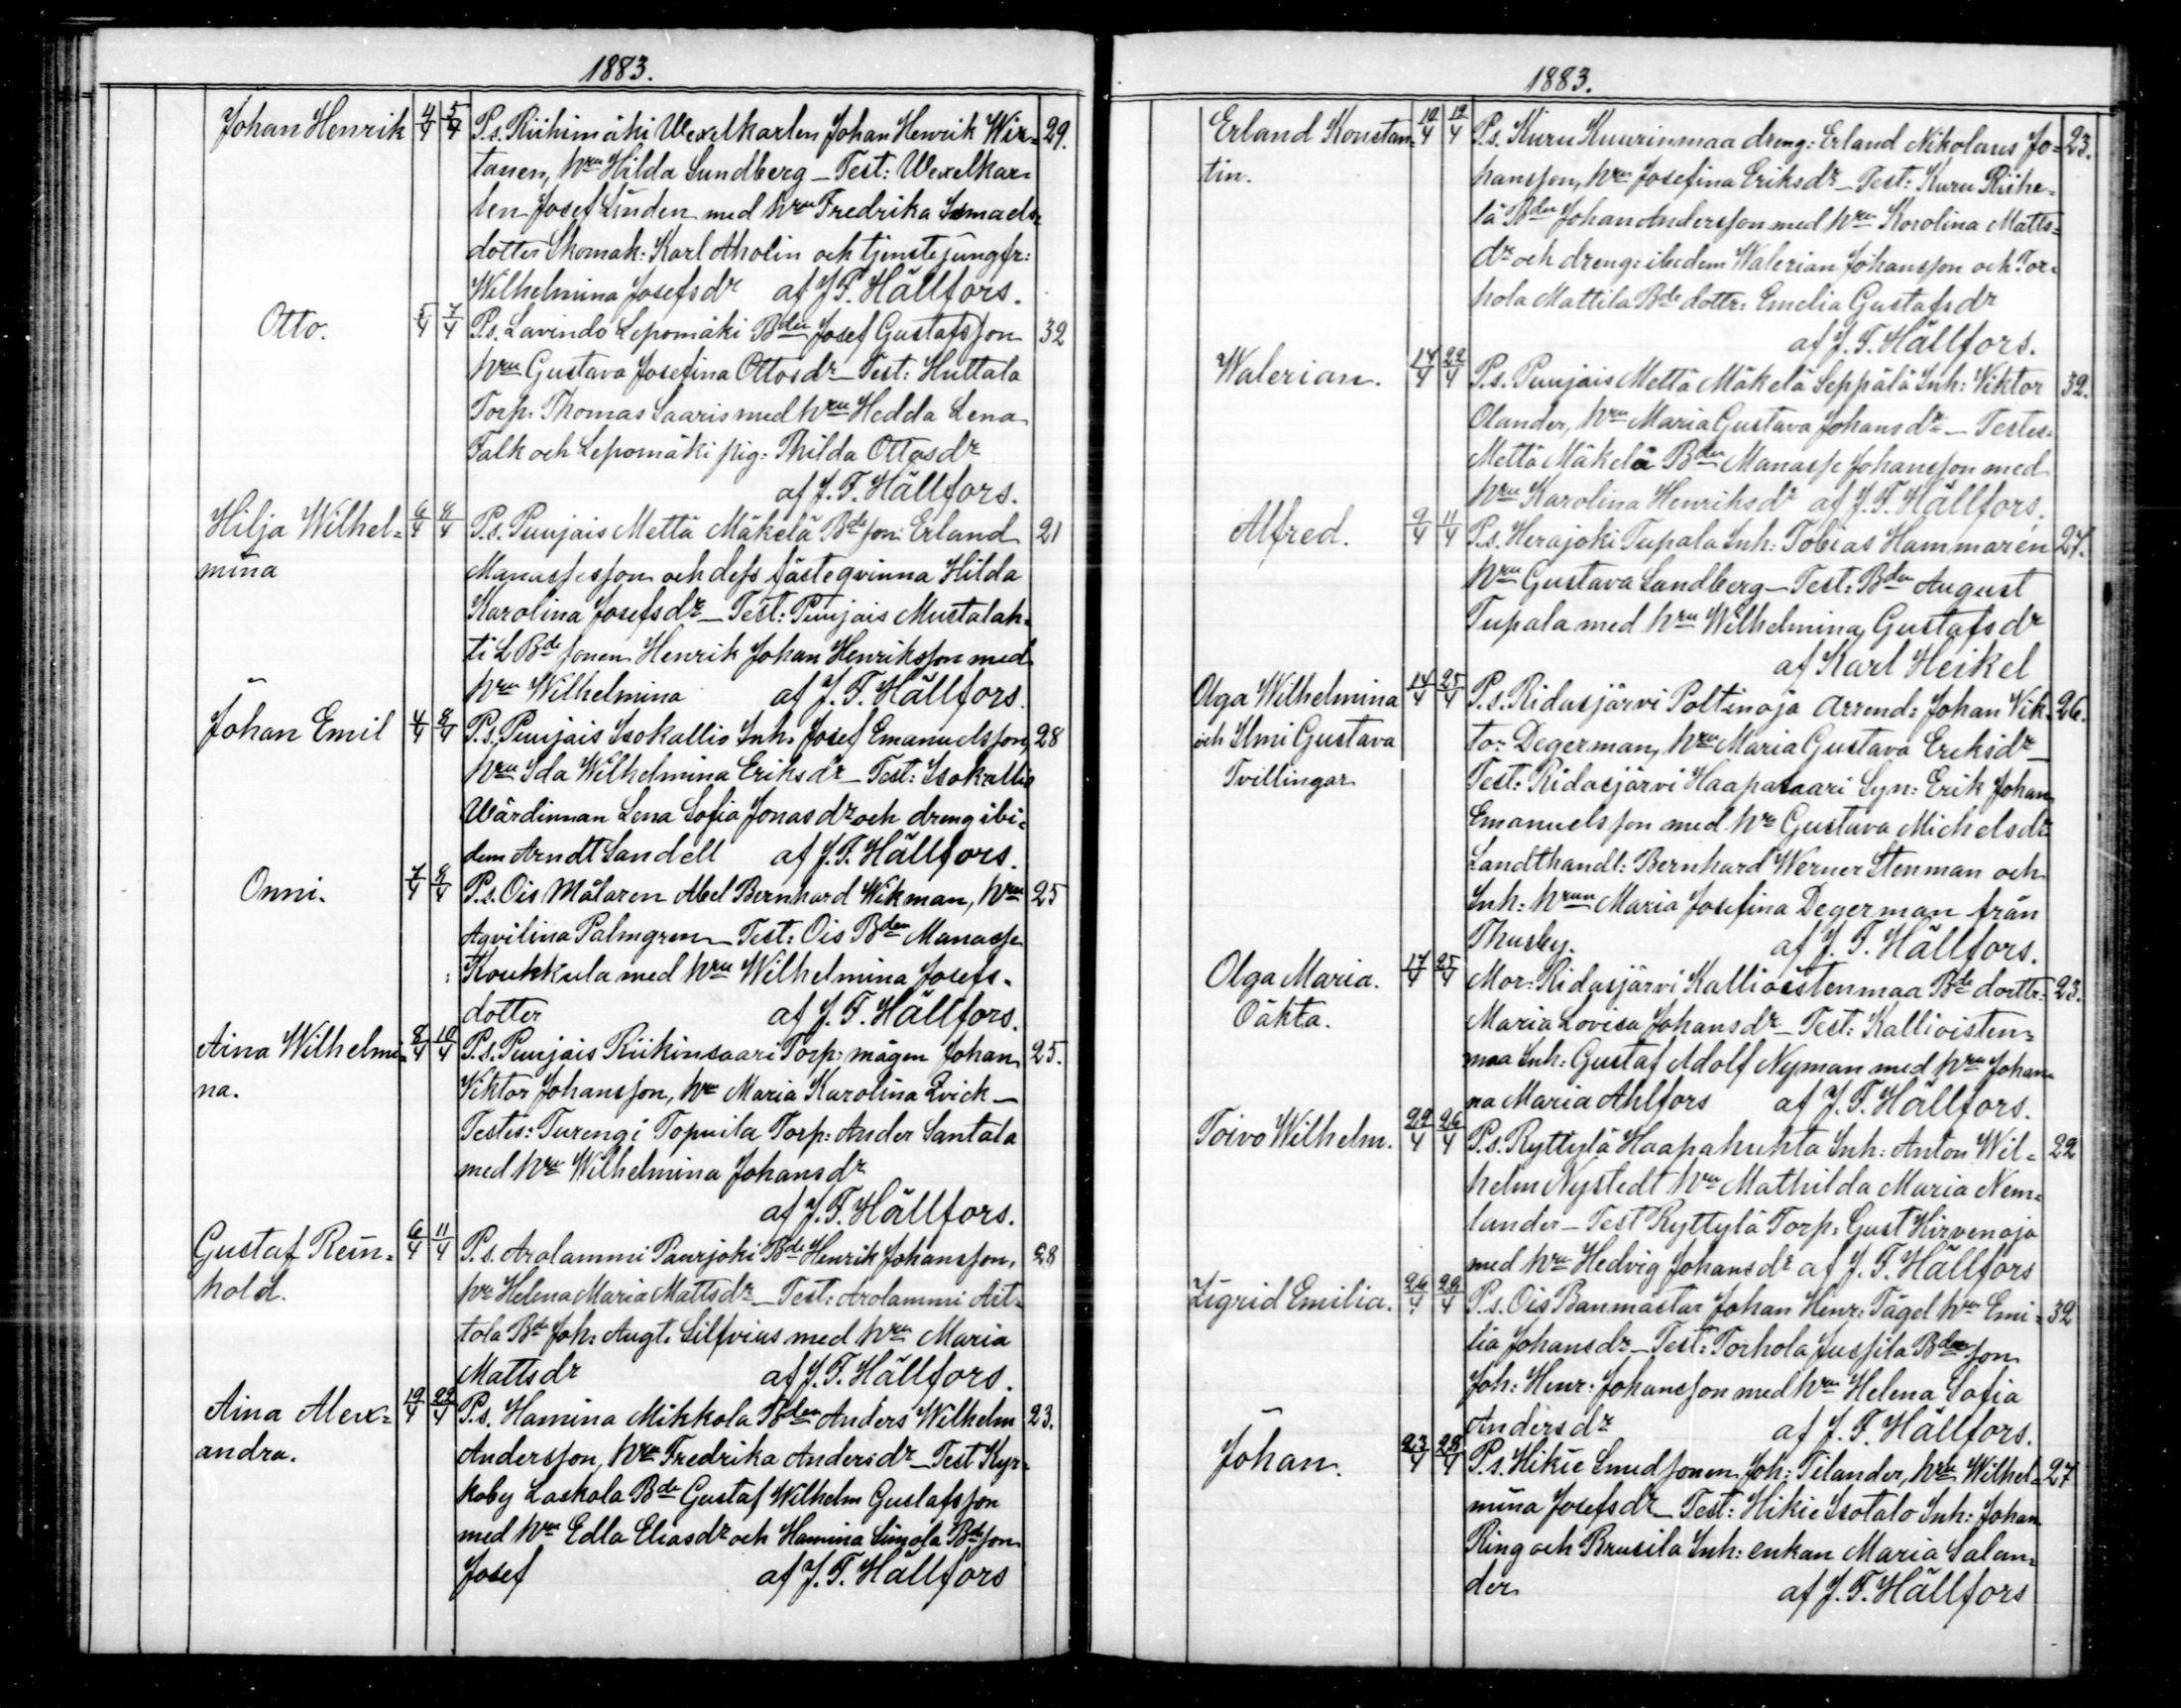 1883.
Johan Henrik 4/4 5/4 P.s. Riihimäki Wexelkarlen Johan Henrik Wir= 29.
tanen, hru Hilda Sundberg – Test: Wexelkar=
len Josef Lindén med hru Fredrika Ismaels=
dotter Skomak: Karl Aholin och tjenstejungfr:
Wilhelmina Josefsdr af J. F. Hällfors.
Otto. 5/4 7/4 P.s. Lavindo Lepomäki Bden Josef Gustafsson 32
hru Gustava Josefina Ottosdr – Test: Huttala
Torp: Thomas Saaris med hru Hedda Lena
Falk och Lepomäki pig: Thilda Ottosdr
af J. F. Hällfors.
Hilja Wilhel= 6/4 8/4 P.s. Puujais Mettä Mäkelä Bde son: Erland 21
mina Manassesson och dess fästeqvinna Hilda
Karolina Josefsdr – Test: Puujais Mustalah=
ti L Bde sonen Henrik Johan Henriksson med
hru Wilhelmina af J. F. Hällfors.
Johan Emil 4/4 8/4 P.s. Puujais Isokallio Inh: Josef Emanuelsson, 28
hru Ida Wilhelmina Eriksdr – Test: Isokallio
Wärdinnan Lena Sofia Jonasdr och dreng ibi=
dem Arndt Sandell af J. F. Hällfors.
Onni. 7/4 8/4 P.s. Ois Målaren Abel Bernhard Wikman, hru 25
Aqvilina Palmgren – Test: Ois Bden Manasse
Koukkula med hru Wilhelmina Josefs=
dotter af J. F. Hällfors.
Aina Wilhelmi= 8/4 10/4 P.s. Puujais Riikinsaari Torp: mågen Johan 25.
na. Viktor Johansson, hru Maria Karolina Qvick –
Testes: Turengi Topuila Torp: Ander Santala
med hru Wilhelmina Johansdr
af J. F. Hällfors.
Gustaf Rein= 6/4 11/4 P.s. Arolammi Paurjoki Bde Henrik Johansson, 28
hold. hru Helena Maria Mattsdr – Test: Arolammi Ait=
tola Bde Joh: Augt. Silfvius med hru Maria
Mattsdr af J. F. Hällfors.
Aina Alex= 19/4 22/4 P.s. Hamina Mikkola Bden Anders Wilhelm 23.
andra. Andersson, hru Fredrika Andersdr – Test Kyr=
koby Laskola Bde Gustaf Wilhelm Gustafsson
med hru Edla Eliasdr och Hamina Simola Bdeson
Josef af J. F. Hällfors
1883.
Erland Konstan= 10/4 12/4 P.s. Kuru Kuurinmaa dreng: Erland Nikolaus Jo= 23.
tin. hansson, hru Josefina Eriksdr – Test: Kuru Riihe=
lä Bden Johan Andersson med hru Karolina Matts=
dr och dreng: ibidem Walerian Johansson och Tor=
hola Mattila Bde dottr: Emelia Gustafsdr
af J. F. Hällfors.
Walerian. 14/4 22/4 P.s. Puujais Mettä Mäkelä Seppälä Inh: Viktor 32.
Olander, hru Maria Gustava Johansdr – Testes:
Mettä Mäkelä Bden Manasse Johansson med
hru Karolina Henriksdr af J. F. Hällfors.
Alfred. 9/4 11/4 P.s. Herajoki Tupala Inh: Tobias Hammarén 27.
hru Gustava Sandberg – Test: Bden August
Tupala med hru Wilhelmina Gustafsdr
af Karl Heikel
Olga Wilhelmina 14/4 25/4 P.s. Ridasjärvi Poltinoja Arrend: Johan Vik= 26.
och Ilmi Gustava tor Degerman, hru Maria Gustava Eriksdr –
Tvillingar Test: Ridasjärvi Haapasaari Syn: Erik Johan
Emanuelsson med hru Gustava Michelsdr
Landthandl: Bernhard Werner Stenman och
Inh: hrun Maria Josefina Degerman från
Thusby. af J. F. Hällfors.
Olga Maria. 17/4 25/4 Mor: Ridasjärvi Kallioistenmaa Bde dottr: 23.
Oäkta. Maria Lovisa Johansdr – Test: Kallioisten=
maa Inh: Gustaf Adolf Nyman med hru Johan=
na Maria Ahlfors af J. F. Hällfors.
Toivo Wilhelm. 22/4 26/4 P.s. Ryttylä Haapahuhta Inh: Anton Wil= 22
helm Nystedt hru Mathilda Maria Nem=
lander – Test Ryttylä Torp: Gust Hirvenoja
med hru Hedvig Johansdr af J. F. Hällfors
Zigrid Emilia. 26/4 28/4 P.s. Ois Banmästar Johan Henr: Tägel hru Emi= 32
lia Johansdr – Test: Torhola Jussila Bdeson
Joh: Henr: Johansson med hru Helena Sofia
Andersdr af J. F. Hällfors.
Johan. 23/4 28/4 P.s. Hikie Smedsonen Joh: Tilander, hru Wilhel= 27
mina Josefsdr – Test: Hikie Isotalo Inh: Johan
Ring och Prusila Inh: enkan Maria Salan=
der af J. F. Hällfors